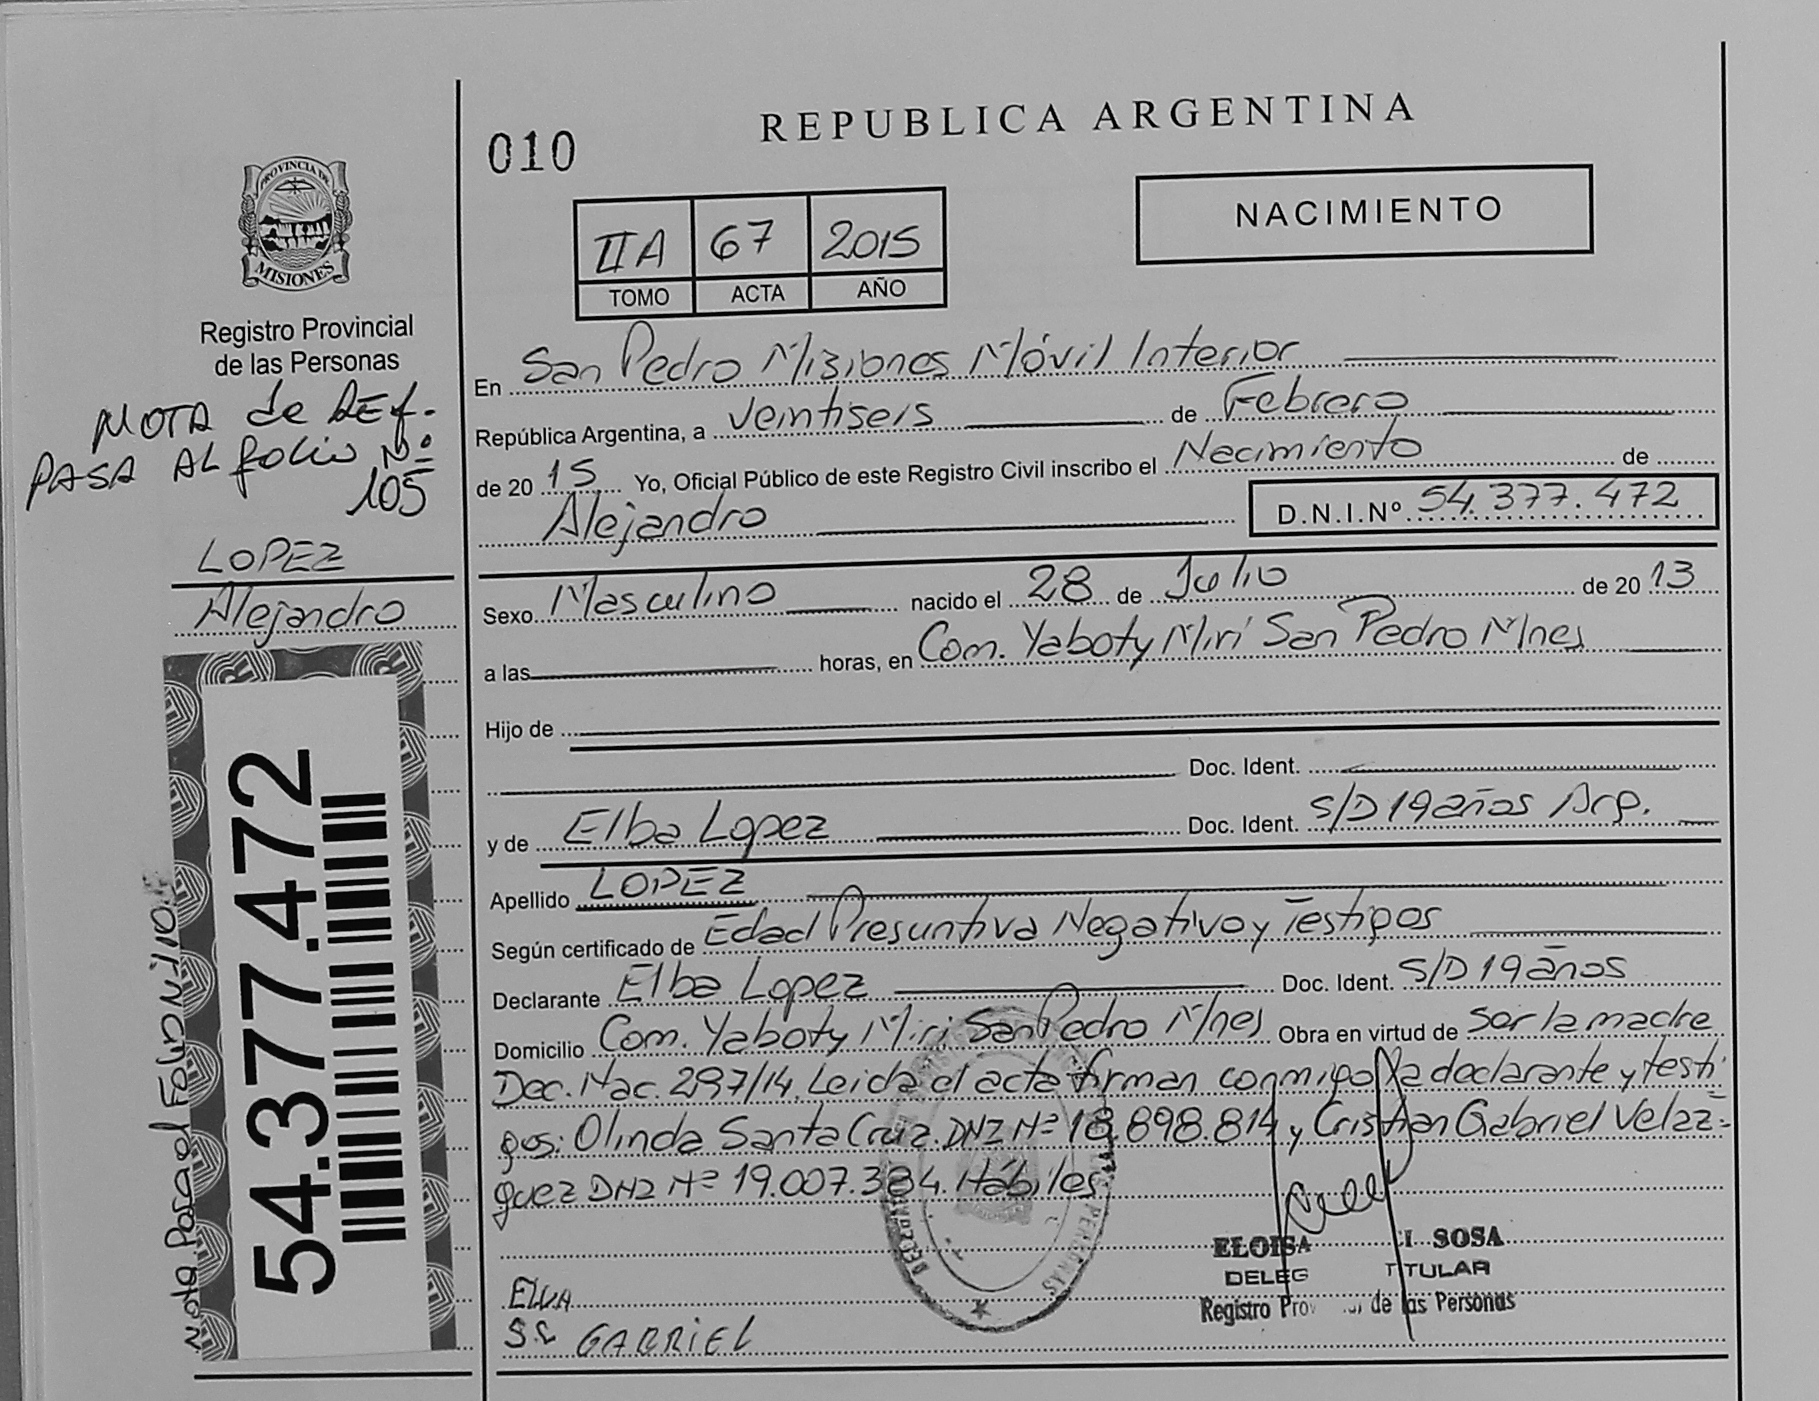 REPUBLICA ARGENTINA
010
NACIMIENTO
IIA 67 2015
TOMO ACTA AÑO
PROVINCIA DE
MISIONES
Registro Provincial
de las Personas
NOTA de REF.
PASA AL folio Nº
105
LOPEZ
Alejandro
54.377.472
Nota Pasa al Folio Nº 110
En San Pedro Misiones Móvil Interior
República Argentina, a veintiseis de Febrero
de 2015 Yo, Oficial Público de este Registro Civil inscribo el Nacimiento de
Alejandro D.N.I.Nº 54.377.472
Sexo Masculino nacido el 28 de Julio de 2013
a las horas, en Com. Yaboty Miri San Pedro Mnes
Hijo de
Doc. Ident.
y de Elba Lopez Doc. Ident. S/D 19 años Arg.
Apellido LOPEZ
Según certificado de Edad Presuntiva Negativo y Testigos
Declarante Elba Lopez Doc. Ident. S/D 19 años
Domicilio Com. Yaboty Miri San Pedro Mnes Obra en virtud de ser la madre
Dec. Nac. 297/14. Leida el acta firman conmigo la declarante y testi-
gos: Olinda Santa Cruz. DNI Nº 18.898.814 y Cristian Gabriel Velaz-
quez DNI Nº 19.007.384. Hábiles
ELOISA I. SOSA
DELEG TITULAR
Registro Prov de las Personas
ELVA
S.C GABRIEL